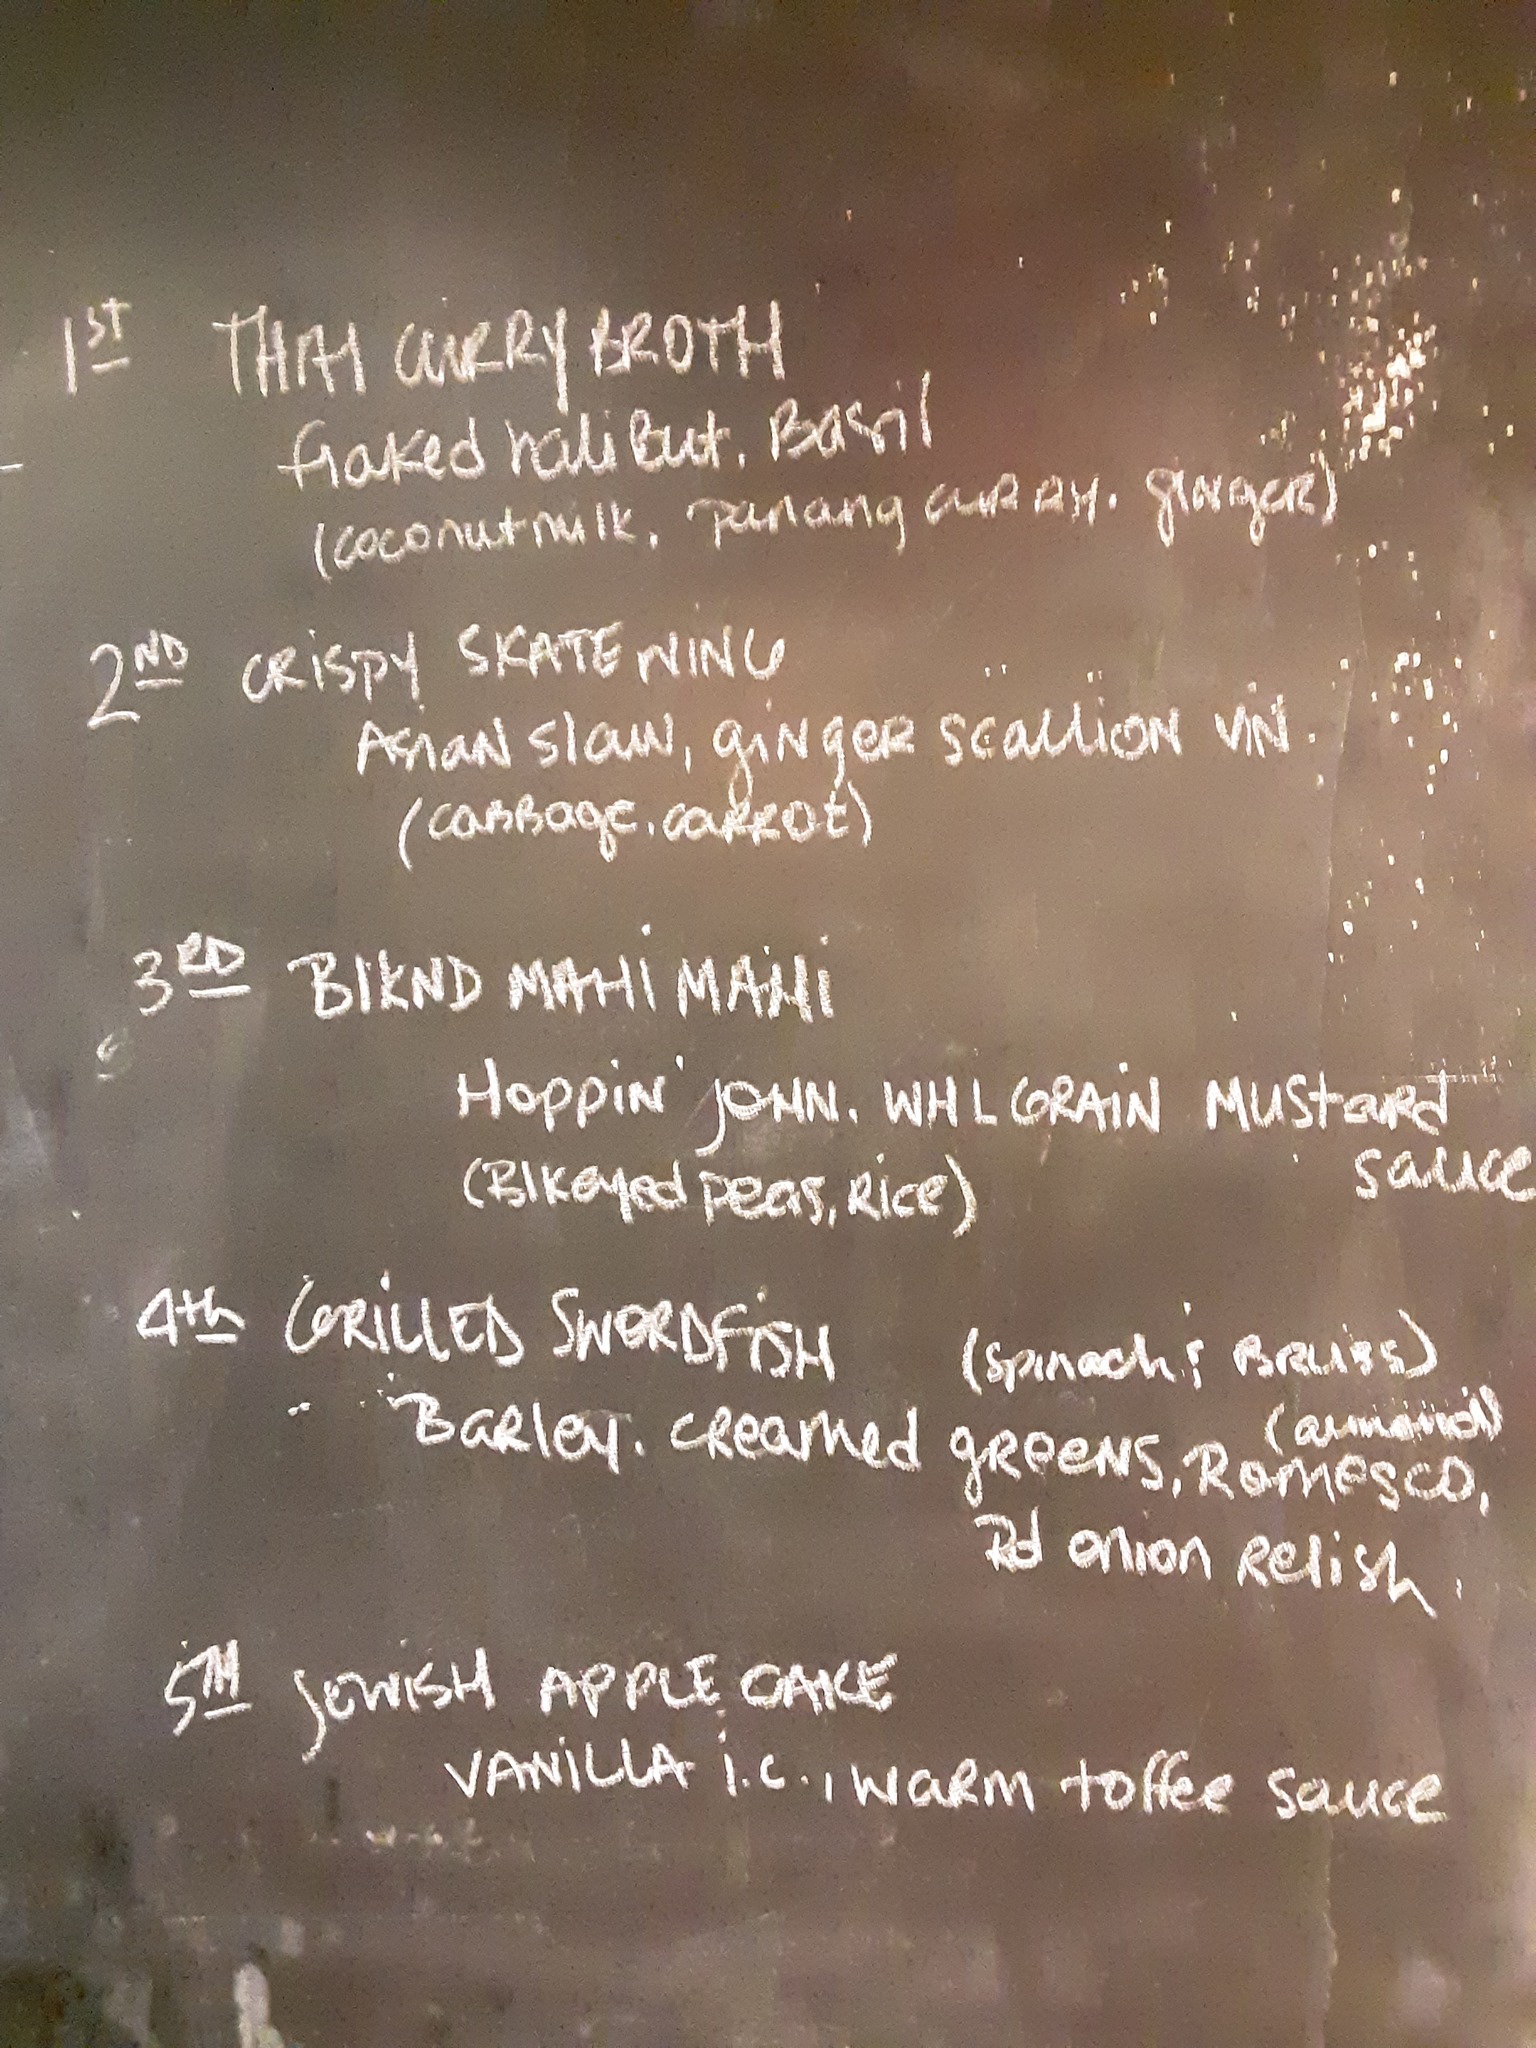 1ST THAI CURRY BROTH
flaked halibut, Basil
(coconut milk, panang CURRY, ginger)
2ND CRISPY SKATE WING
Asian slaw, ginger scallion VIN.
(cabbage, carrot)
3RD BLKND MAHI MAHI
Hoppin' JOHN, WHL GRAIN MUStard
sauce
(Blk eyed peas, Rice)
4th GRILLED SWORDFISH (spinach,
Barley, creamed greens, Romesco,
Rd onion Relish.
5TH JEWISH APPLE CAKE
VANILLA i.c., warm toffee sauce